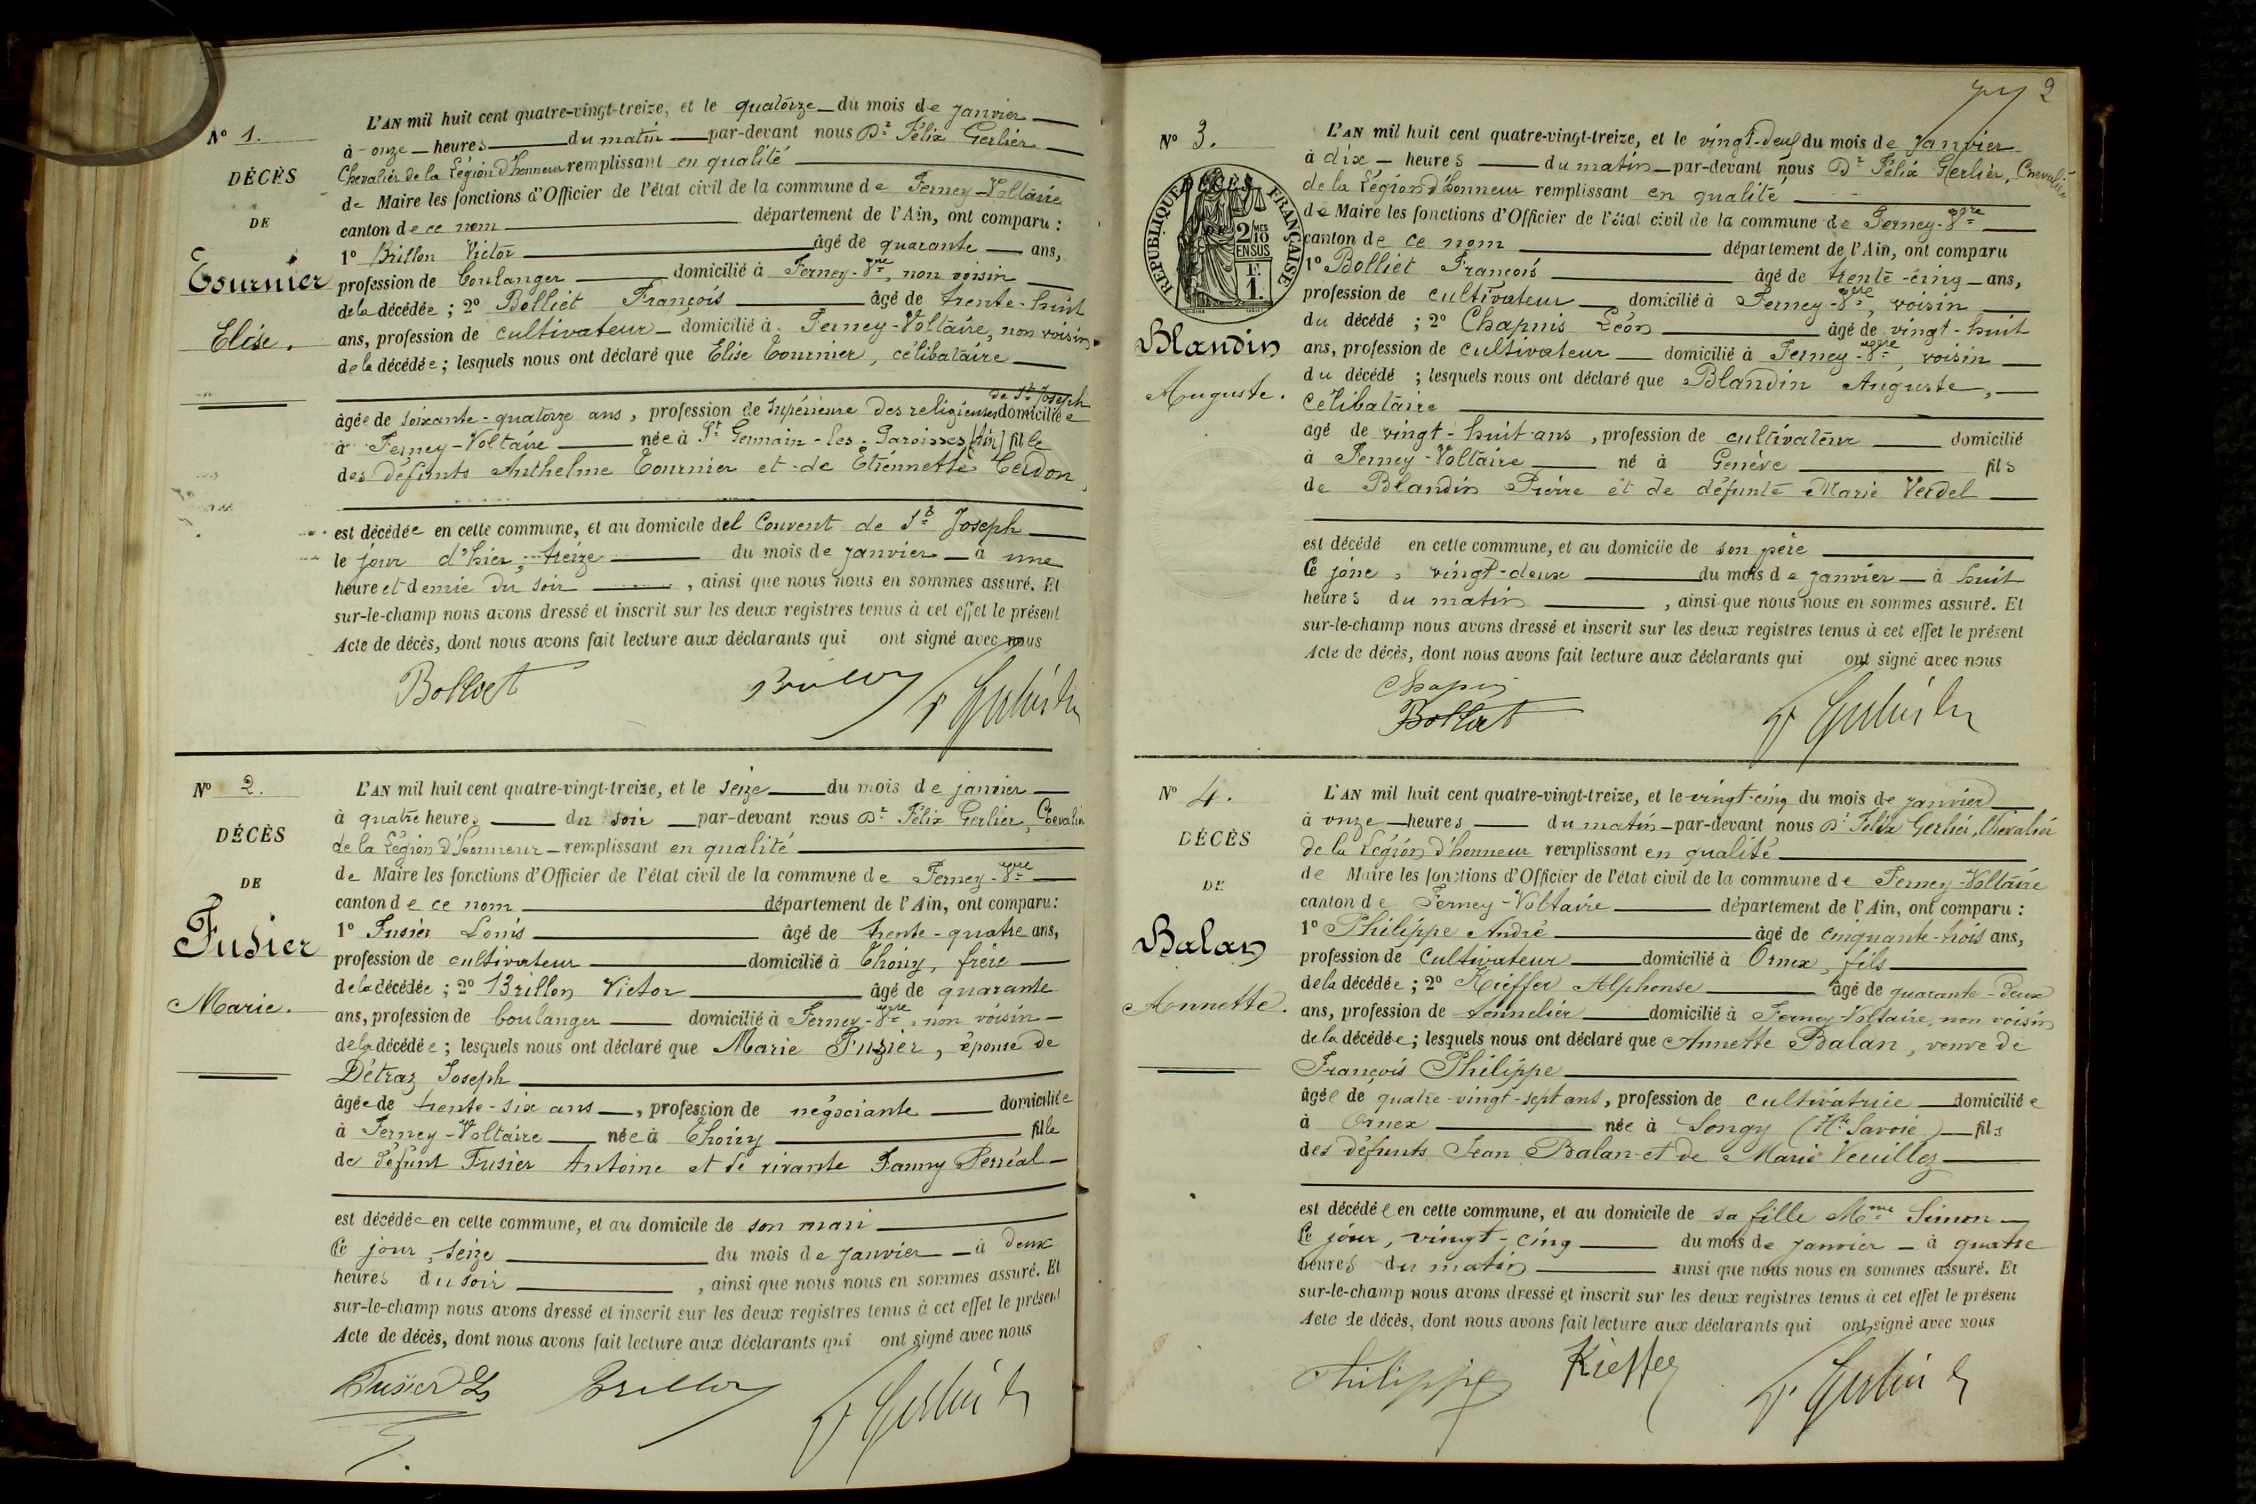 N° 1.
DÉCÈS
DE
Tournier
Elise.
L'AN mil huit cent quatre-vingt-treize, et le quatorze du mois de janvier
à onze heures du matin par-devant nous Dr Félix Gerlier
Chevalier de la Légion d'honneur remplissant en qualité
de Maire les fonctions d'Officier de l'état civil de la commune de Ferney-Voltaire
canton de ce nom département de l'Ain, ont comparu :
1° Brillon Victor âgé de quarante ans,
profession de boulanger domicilié à Ferney-Vre, non voisin
de la décédée ; 2° Bolliet François âgé de trente-huit
ans, profession de cultivateur domicilié à Ferney-Voltaire, non voisin
de la décédée ; lesquels nous ont déclaré que Elise Tournier, célibataire
de St Joseph
âgée de soixante-quatorze ans, profession de Supérieure des religieuses domiciliée
à Ferney-Voltaire née à St Germain-les-Paroisses (Ain) fille
des défunts Anthelme Tournier et de Etiennette Cerdon,
est décédée en cette commune, et au domicile del Couvent de St Joseph
le jour d'hier, treize du mois de janvier à une
heure et demie du soir, ainsi que nous nous en sommes assuré. Et
sur-le-champ nous avons dressé et inscrit sur les deux registres tenus à cet effet le présent
Acte de décès, dont nous avons fait lecture aux déclarants qui ont signé avec nous
Bolliet Brillon F Gerlier Dr
N° 2.
DÉCÈS
DE
Fusier
Marie.
L'AN mil huit cent quatre-vingt-treize, et le seize du mois de janvier
à quatre heures du soir par-devant nous Dr Félix Gerlier, Chevalier
de la Légion d'honneur remplissant en qualité
de Maire les fonctions d'Officier de l'état civil de la commune de Ferney-Vre
canton de ce nom département de l'Ain, ont comparu :
1° Fusier Louis âgé de trente-quatre ans,
profession de cultivateur domicilié à Thoiry, frère
de la décédée ; 2° Brillon Victor âgé de quarante
ans, profession de boulanger domicilié à Ferney-Vre, non voisin
de la décédée ; lesquels nous ont déclaré que Marie Fusier, épouse de
Détraz Joseph
âgée de trente-six ans, profession de négociante domiciliée
à Ferney-Voltaire née à Thoiry fille
de défunt Fusier Antoine et de vivante Fanny Perréal
est décédée en cette commune, et au domicile de son mari
Ce jour, seize du mois de janvier à deux
heures du soir, ainsi que nous nous en sommes assuré. Et
sur-le-champ nous avons dressé et inscrit sur les deux registres tenus à cet effet le présent
Acte de décès, dont nous avons fait lecture aux déclarants qui ont signé avec nous
Fusier Ls Brillon F Gerlier Dr
2
N° 3.
DÉCÈS
RÉPUBLIQUE FRANÇAISE
2 MES 10 EN SUS
F. 1.
Blandin
Auguste.
L'AN mil huit cent quatre-vingt-treize, et le vingt-deux du mois de janvier
à dix heures du matin par-devant nous Dr Félix Gerlier, Chevalier
de la Légion d'honneur remplissant en qualité
de Maire les fonctions d'Officier de l'état civil de la commune de Ferney-Vre
canton de ce nom département de l'Ain, ont comparu
1° Bolliet François âgé de trente-cinq ans,
profession de cultivateur domicilié à Ferney-Vre, voisin
du décédé ; 2° Chapuis Léon âgé de vingt-huit
ans, profession de cultivateur domicilié à Ferney-Vre, voisin
du décédé ; lesquels nous ont déclaré que Blandin Auguste,
célibataire
âgé de vingt-huit ans, profession de cultivateur domicilié
à Ferney-Voltaire né à Genève fils
de Blandin Pierre et de défunte Marie Verdel
est décédé en cette commune, et au domicile de son père
Ce jour, vingt-deux du mois de janvier à huit
heures du matin, ainsi que nous nous en sommes assuré. Et
sur-le-champ nous avons dressé et inscrit sur les deux registres tenus à cet effet le présent
Acte de décès, dont nous avons fait lecture aux déclarants qui ont signé avec nous
Chapuis
Bolliet F Gerlier Dr
N° 4.
DÉCÈS
DE
Balan
Annette.
L'AN mil huit cent quatre-vingt-treize, et le vingt-cinq du mois de janvier
à onze heures du matin par-devant nous Dr Félix Gerlier, Chevalier
de la Légion d'honneur remplissant en qualité
de Maire les fonctions d'Officier de l'état civil de la commune de Ferney-Voltaire
canton de Ferney-Voltaire département de l'Ain, ont comparu :
1° Philippe André âgé de cinquante-trois ans,
profession de Cultivateur domicilié à Ornex, fils
de la décédée ; 2° Kieffer Alphonse âgé de quarante-deux
ans, profession de tonnelier domicilié à Ferney-Voltaire, non voisin
de la décédée ; lesquels nous ont déclaré que Annette Balan, veuve de
François Philippe
âgée de quatre-vingt-sept ans, profession de cultivatrice domiciliée
à Ornex née à Songy (Hte Savoie) fils
des défunts Jean Balan et de Marie Veuillez
est décédée en cette commune, et au domicile de sa fille Mme Simon
Ce jour, vingt-cinq du mois de janvier à quatre
heures du matin ainsi que nous nous en sommes assuré. Et
sur-le-champ nous avons dressé et inscrit sur les deux registres tenus à cet effet le présent
Acte de décès, dont nous avons fait lecture aux déclarants qui ont signé avec nous
Philippe Kieffer F Gerlier Dr